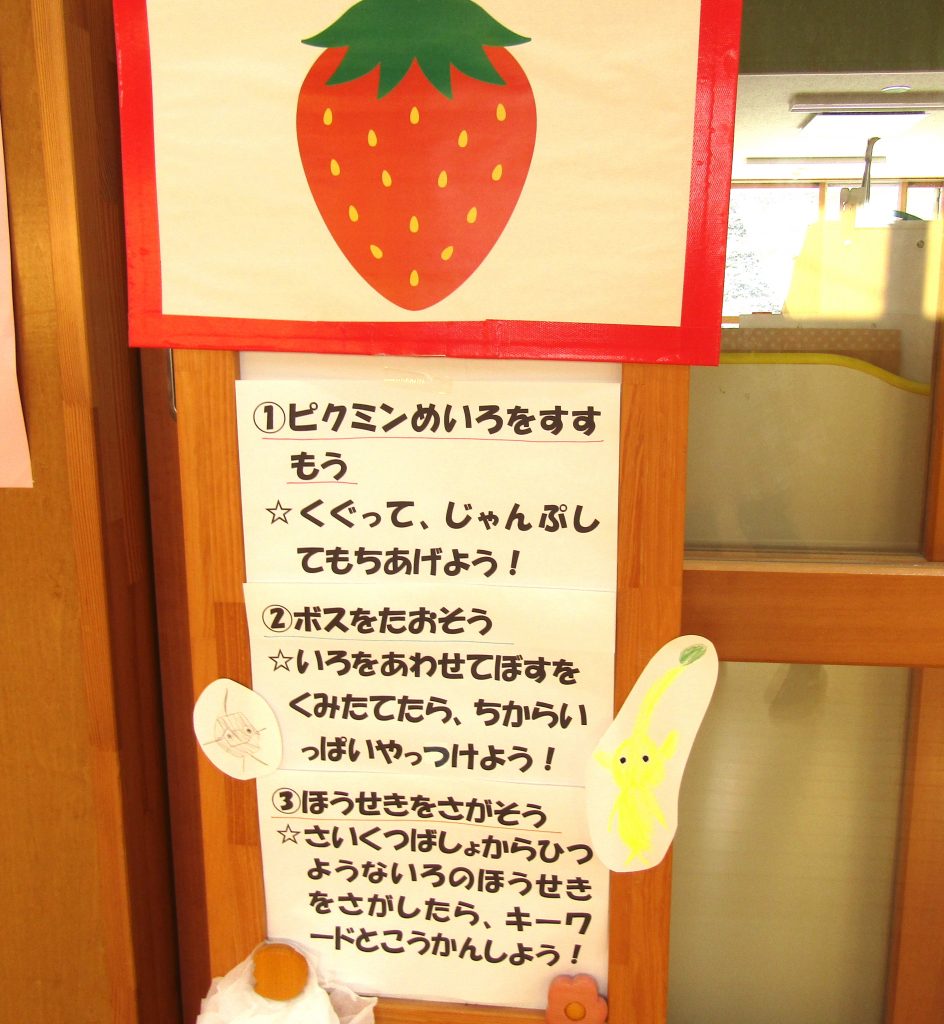 ①ピクミンめいろをすす
もう
☆くぐって、じゃんぷし
てもちあげよう！
②ボスをたおそう
☆いろをあわせてぼすを
くみたてたら、ちからい
っぱいやっつけよう！
③ほうせきをさがそう
☆さいくつばしょからひつ
ようないろのほうせき
をさがしたら、キーワ
ードとこうかんしよう！